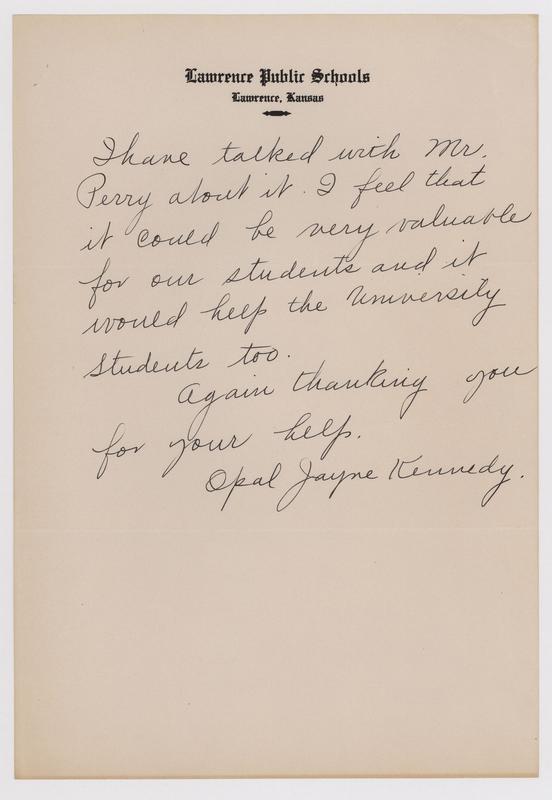 Lawrence Public Schools
Lawrence, Kansas
I have talked with Mr.
Perry about it. I feel that
it could be very valuable
for our students and it
would help the University
students too.
Again thanking you
for your help.
Opal Jayne Kennedy.